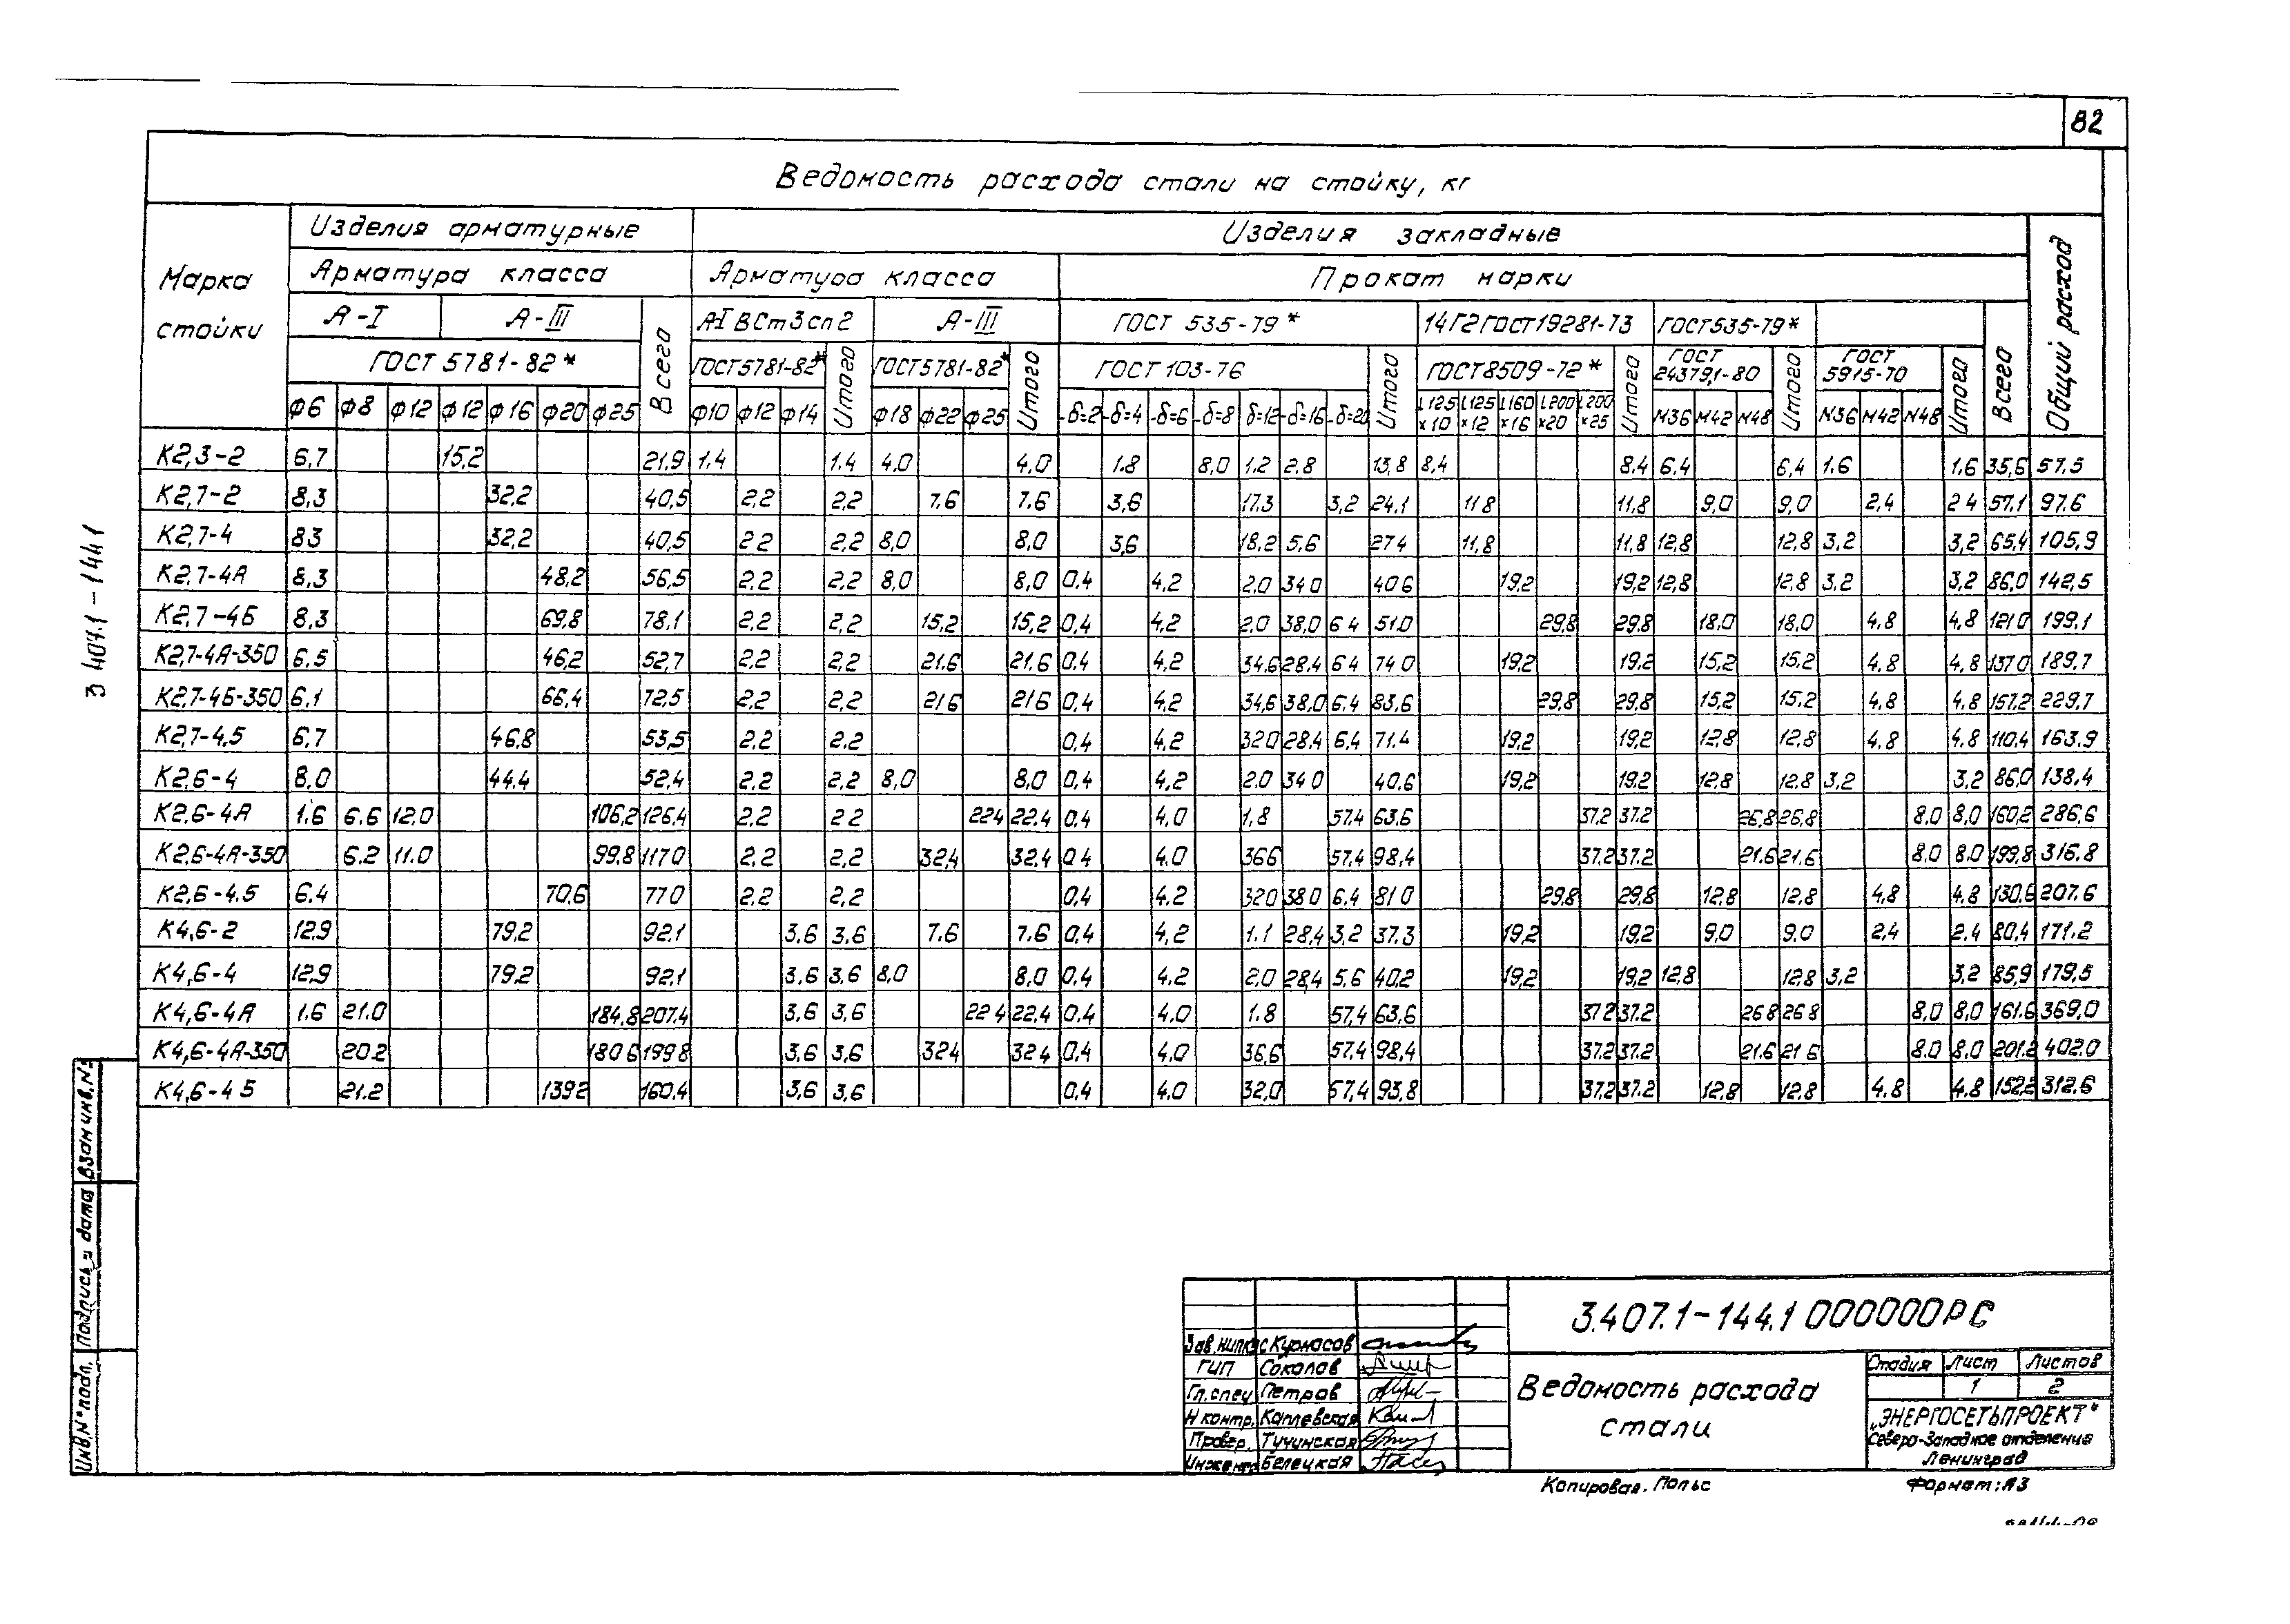 82
Ведомость расхода стали на стойку, кг
Марка стойки
Изделия арматурные
Изделия закладные
Общий расход
Арматура класса
Арматура класса
Прокат марки
А-I
А-III
Всего
А-I ВСт3сп2
А-III
ГОСТ 535-79*
14Г2 ГОСТ 19281-73
ГОСТ 535-79*
Всего
ГОСТ 5781-82*
ГОСТ 5781-82*
Итого
ГОСТ 5781-82*
Итого
ГОСТ 103-76
Итого
ГОСТ 8509-72*
Итого
ГОСТ 24379,1-80
Итого
ГОСТ 5915-70
Итого
Ф6 Ф8 Ф12 Ф12 Ф16 Ф20 Ф25 Ф10 Ф12 Ф14 Ф18 Ф22 Ф25 -δ=2 -δ=4 -δ=6 -δ=8 δ=12 -δ=16 -δ=20 L125×10 L125×12 L160×16 L200×20 L200×25 М36 М42 М48 М36 М42 М48
К2,3-2 6,7 15,2 21,9 1.4 1.4 4.0 4,0 1.8 8,0 1.2 2.8 13,8 8,4 8.4 6.4 6,4 1.6 1.6 35,6 57.5
К2,7-2 8,3 32,2 40,5 2,2 2,2 7.6 7.6 3,6 17.3 3,2 24.1 11 8 11,8 9,0 9,0 2,4 2 4 57,1 97.6
К2,7-4 83 32,2 40,5 2 2 2,2 8,0 8,0 3,6 18,2 5,6 274 11,8 11,8 12,8 12,8 3,2 3,2 65,4 105,9
К2,7-4А 8,3 48,2 56,5 2,2 2,2 8,0 8,0 0.4 4,2 2,0 34 0 40 6 19,2 19,2 12,8 12,8 3,2 3,2 86,0 142,5
К2,7-4Б 8,3 69,8 78,1 2,2 2,2 15,2 15,2 0,4 4,2 2,0 38,0 6 4 51.0 29,8 29,8 18,0 18,0 4,8 4,8 121 0 199,1
К2,7-4А-350 6,5 46,2 52,7 2,2 2,2 21.6 21.6 0.4 4,2 34.6 28.4 6 4 74 0 19,2 19,2 15,2 15,2 4,8 4,8 137 0 189,7
К2,7-4Б-350 6,1 66,4 72,5 2,2 2,2 21 6 21 6 0,4 4,2 34,6 38,0 6,4 83,6 29,8 29,8 15,2 15,2 4,8 4,8 157.2 229,7
К2,7-4,5 6,7 46,8 53,5 2.2 2.2 0.4 4,2 320 28.4 6,4 71.4 19,2 19,2 12,8 12,8 4,8 4.8 110,4 163.9
К2,6-4 8,0 44.4 52,4 2,2 2,2 8,0 8,0 0,4 4,2 2.0 34 0 40,6 19,2 19,2 12,8 12,8 3,2 3,2 86,0 138,4
К2,6-4А 1.6 6.6 12,0 106,2 126,4 2,2 2 2 22 4 22.4 0.4 4,0 1,8 57.4 63,6 37.2 37.2 26,8 26,8 8.0 8,0 160,2 286,6
К2,6-4А-350 6.2 11.0 99,8 117 0 2.2 2,2 32,4 32.4 0 4 4.0 36 6 57.4 98,4 37.2 37.2 21.6 21.6 8.0 8.0 199,8 316.8
К2,6-4.5 6.4 70,6 77 0 2.2 2,2 0,4 4.2 320 38 0 6,4 81 0 29,8 29,8 12,8 12,8 4,8 4.8 130.6 207.6
К4,6-2 12,9 79,2 92.1 3.6 3.6 7.6 7.6 0,4 4,2 1.1 28,4 3,2 37.3 19,2 19,2 9,0 9.0 2,4 2.4 80,4 171.2
К4,6-4 12,9 79,2 92,1 3,6 3,6 8,0 8,0 0.4 4.2 2,0 28,4 5,6 40,2 19,2 19,2 12,8 12,8 3,2 3,2 85,9 179,5
К4,6-4А 1.6 21.0 184,8 207.4 3,6 3,6 22 4 22,4 0.4 4.0 1.8 57,4 63,6 37 2 37.2 26 8 26 8 8,0 8,0 161.6 369,0
К4,6-4А-350 20.2 180 6 199 8 3,6 3,6 32 4 32 4 0,4 4.0 36,6 57.4 98,4 37.2 37.2 21.6 21 6 8.0 8.0 201.2 402.0
К4,6-4 5 21.2 139 2 160.4 3,6 3,6 0,4 4.0 32,0 57,4 93,8 37,2 37.2 12,8 12,8 4.8 4.8 152,2 312.6
3 407.1 - 144 1
Взам инв.№
Подпись и дата
Инв.№ подл.
3.407.1-144.1 000000РС
Ведомость расхода
стали
Зав.нилкэс Курносов
ГИП Соколов
Гл.спец Петров
Н контр. Каплевская
Провер. Тучинская
Инженер Белецкая
Стадия Лист Листов
1 2
„ЭНЕРГОСЕТЬПРОЕКТ“
Северо-Западное отделение
Ленинград
Копировал. Польс
Формат: А3